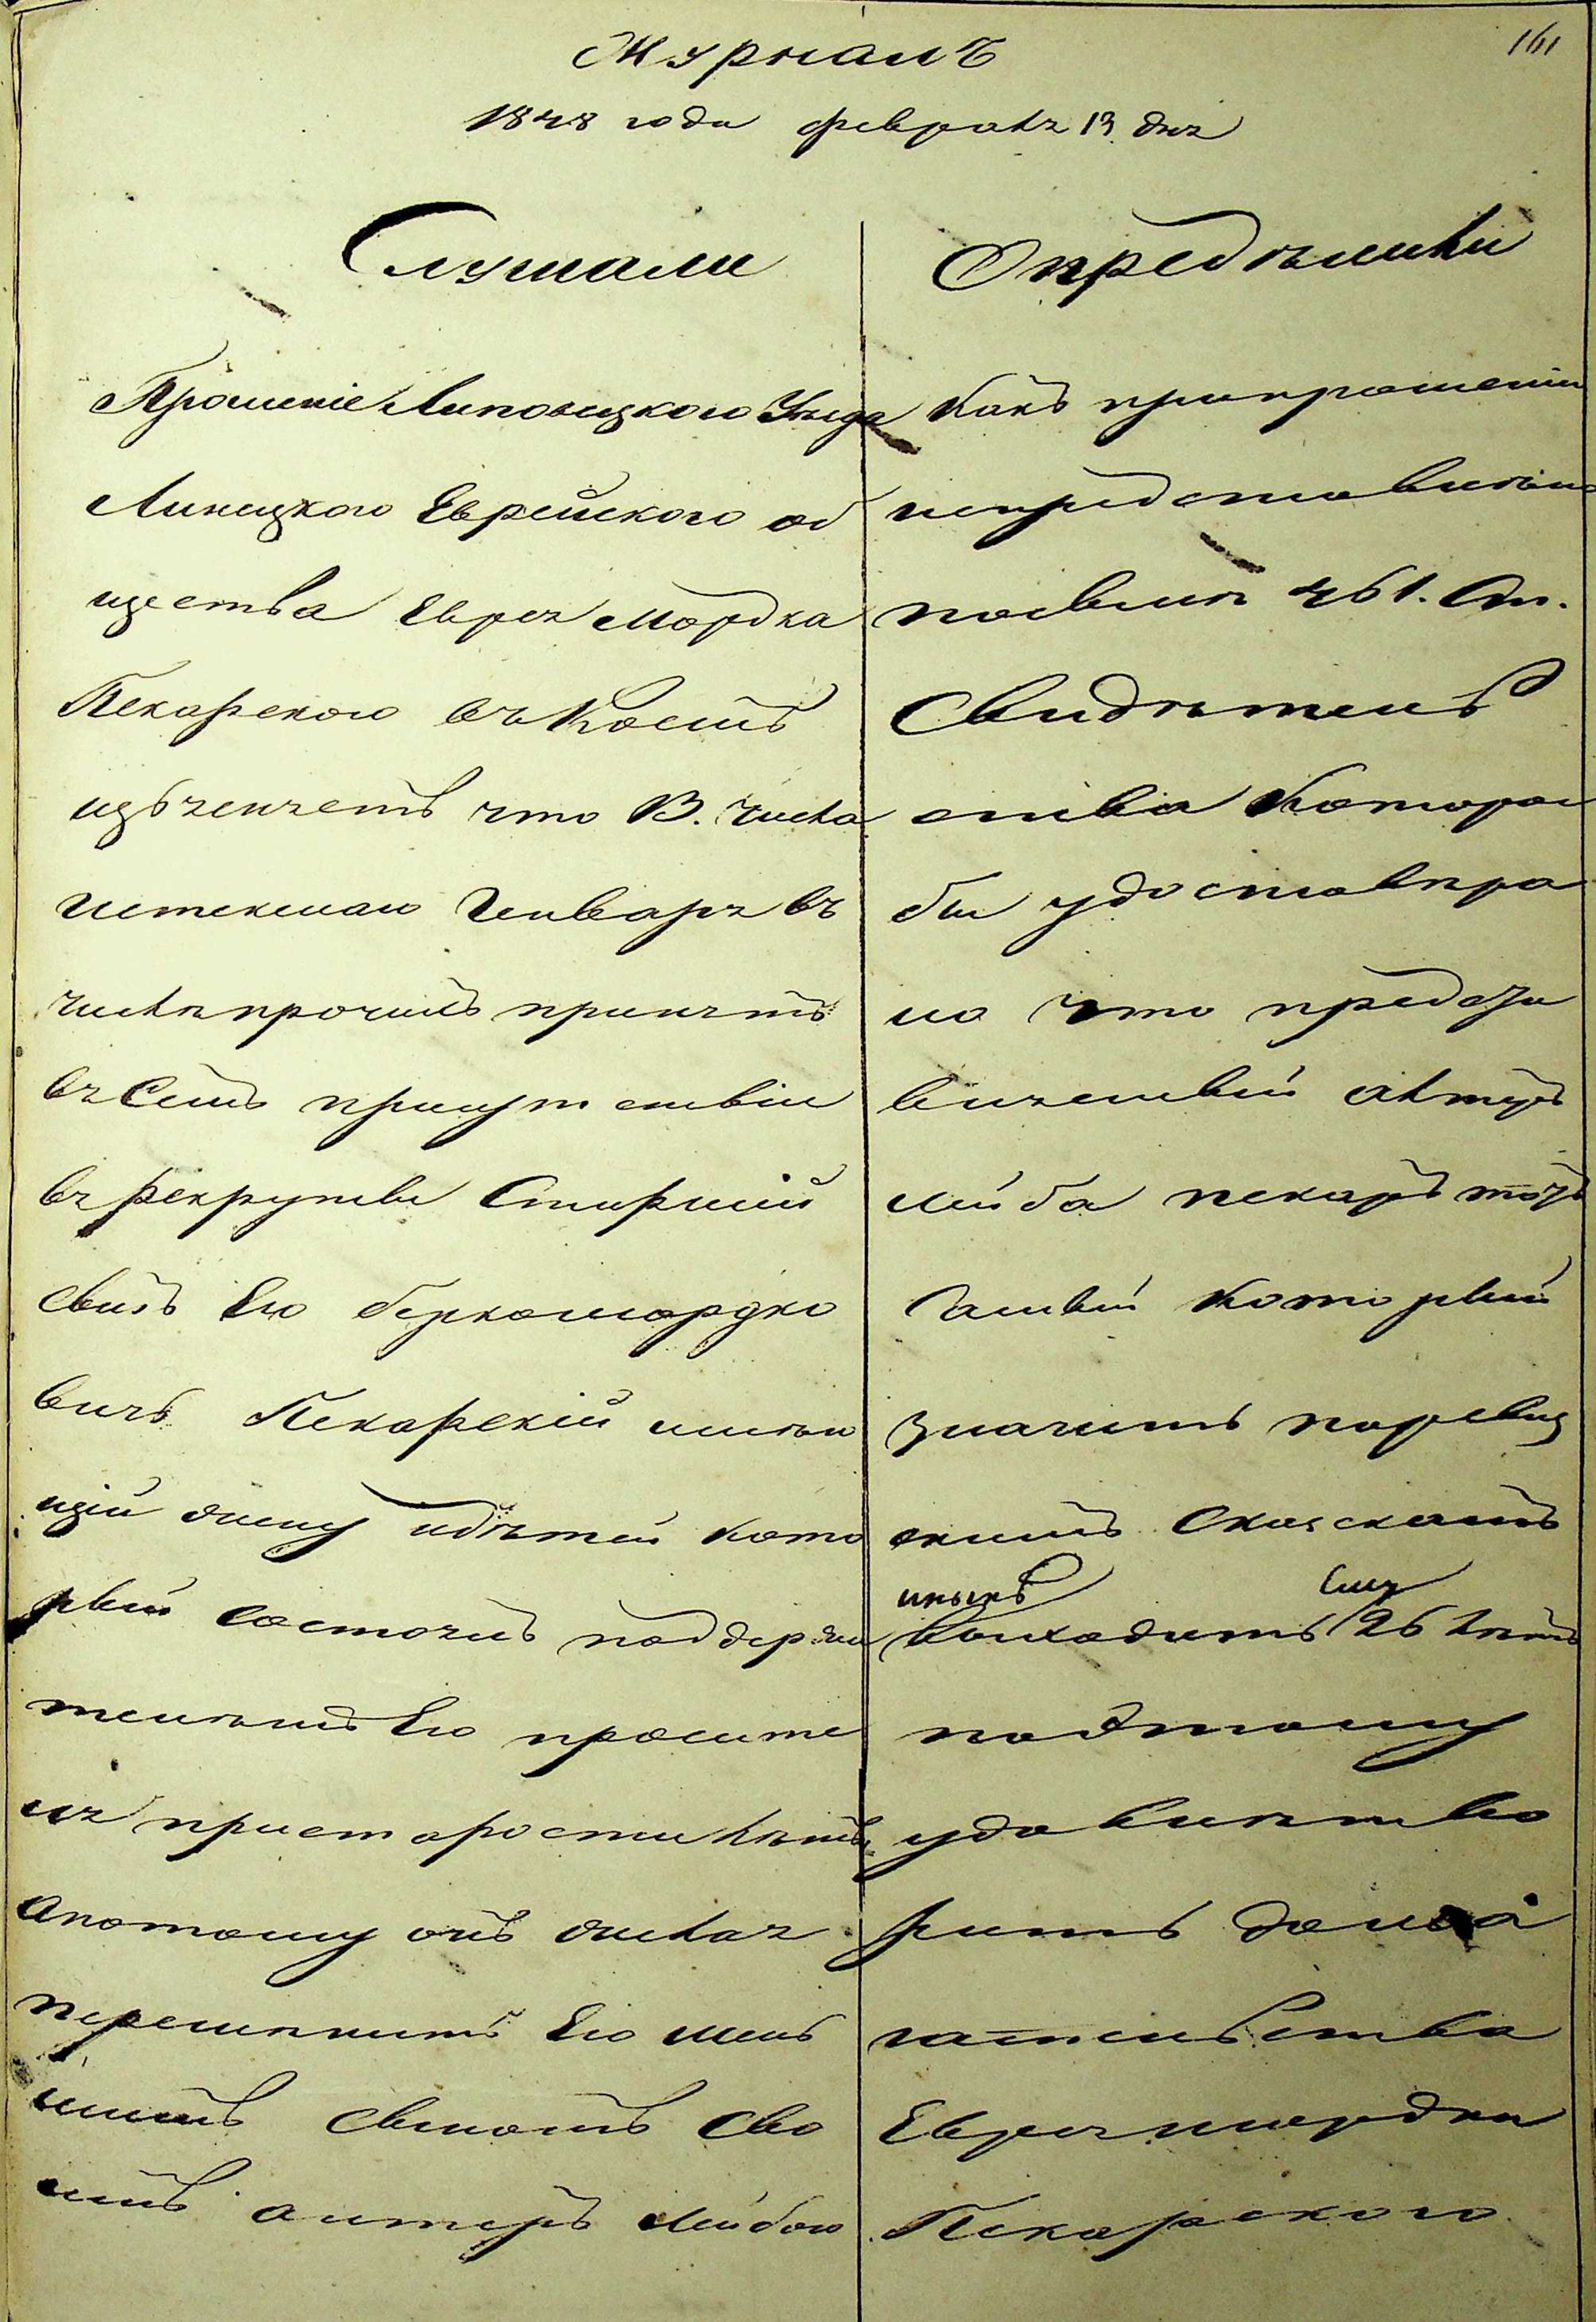 161
Журналъ
1848 года февраля 13 дня
Слушали
Прошеніе Липовецкого Уѣзда
Линецкого Еврейского об
щества Еврея Мордка
Пекарского въ коемъ
изъясняетъ что 13. числа
истекшаго Генваря въ
числѣ прочихъ принятъ
въ семъ присутствіи
въ рекруты старшій
сынъ Его Берко Мордко
вичъ Пекарскій имѣю
щій жену и дѣтей кото
рый состоитъ поддержи
телемъ Его просите
ля при старости лѣтъ
а потому онъ желая
перемѣнить Его мень
шимъ сыномъ сво
имъ Антеръ Лейбою
Опредѣлили
Какъ при прошеніи
непредставлено
посилѣ 461. ст.
Свидѣтель
ства которое
бы удостовѣря
ло что предъяв
вляемый Актеръ
Лейба Пекарь тотъ
самый который
значитъ по ревиз
скимъ сказкамъ
и нынѣ ему
выходитъ 26 лѣтъ
подтому
удовлетво
рить домога
тельства
Еврея Мордка
Пекарского